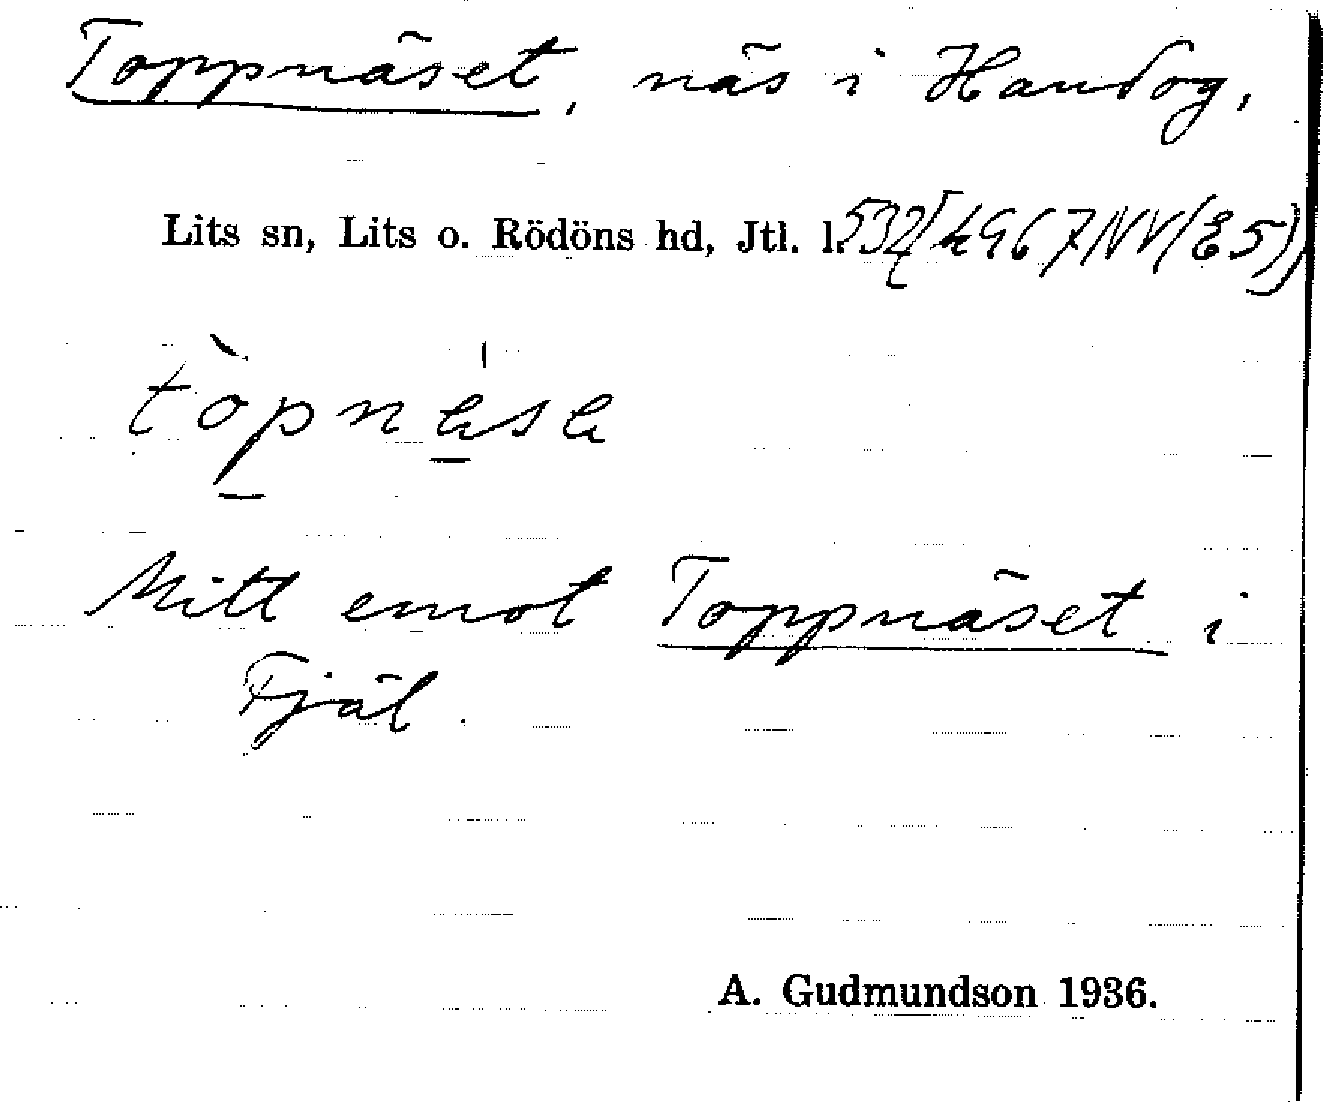 Toppnäset, näs i Handog,
Lits sn, Lits o. Rödöns hd, Jtl. l.
Mitt emot Toppnäset i
Fjäl.
A. Gudmundson 1936.